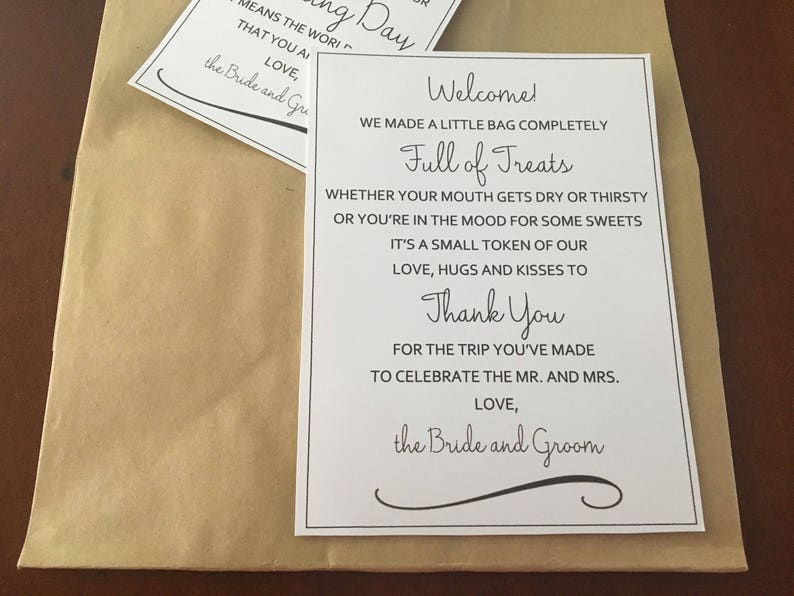 OUR
ing Day
MEANS THE WORLD
THAT YOU
LOVE,
the Bride and
Welcome!
WE MADE A LITTLE BAG COMPLETELY
Full of Treats
WHETHER YOUR MOUTH GETS DRY OR THIRSTY
OR YOU'RE IN THE MOOD FOR SOME SWEETS
IT'S A SMALL TOKEN OF OUR
LOVE, HUGS AND KISSES TO
Thank You
FOR THE TRIP YOU'VE MADE
TO CELEBRATE THE MR. AND MRS.
LOVE,
the Bride and Groom